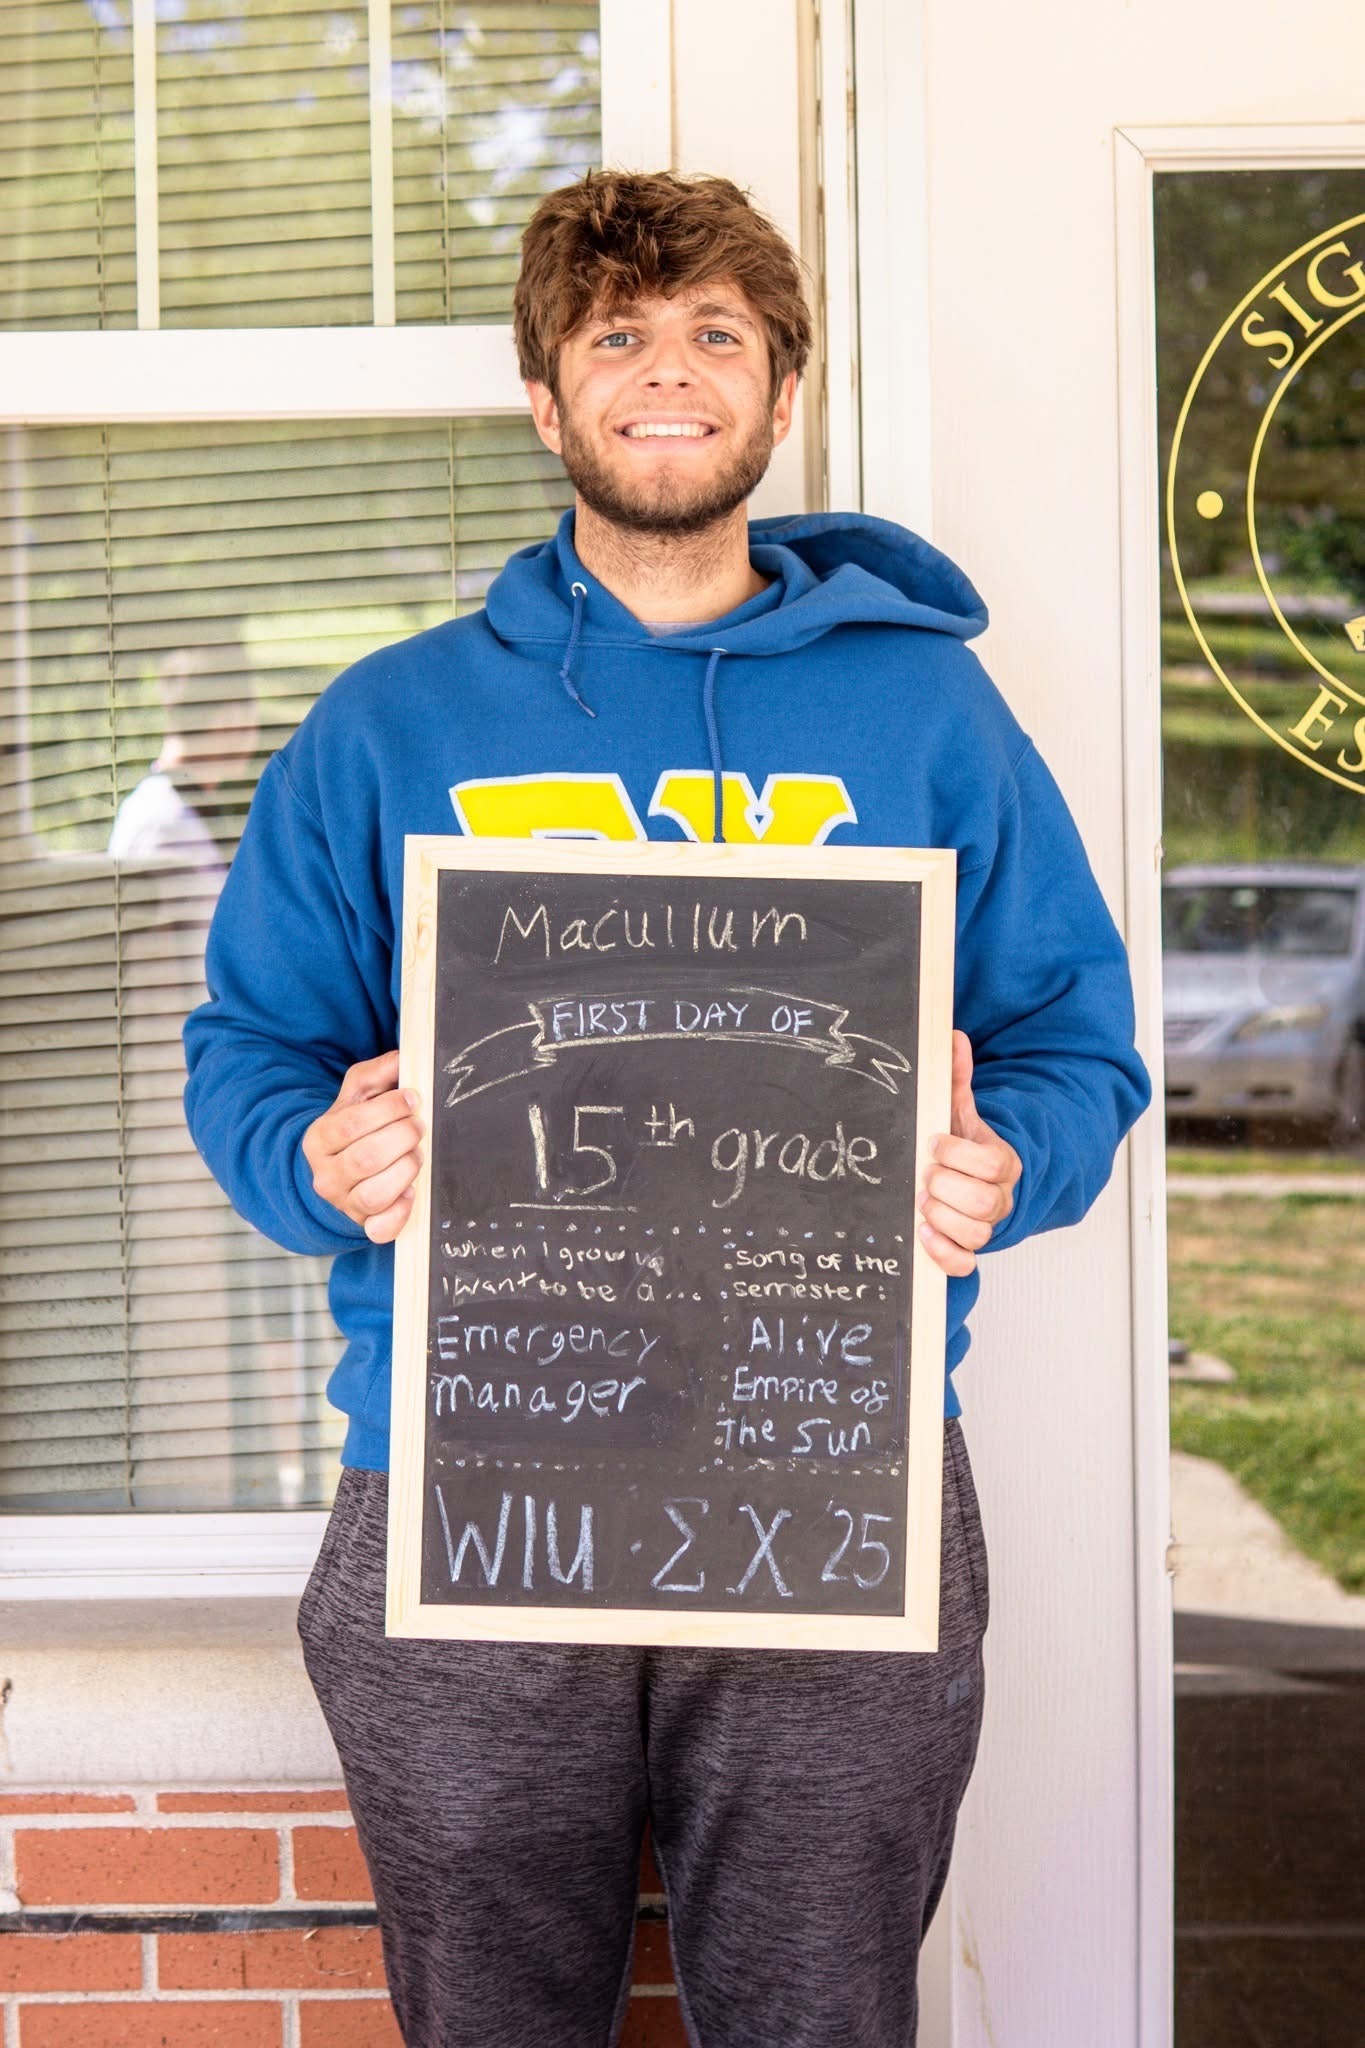 Macullum
FIRST DAY OF
15th grade
when I grow up
I want to be a...
Emergency
Manager
song of the
semester:
Alive
Empire of
the Sun
WIU · Σ X '25
SIG
ES